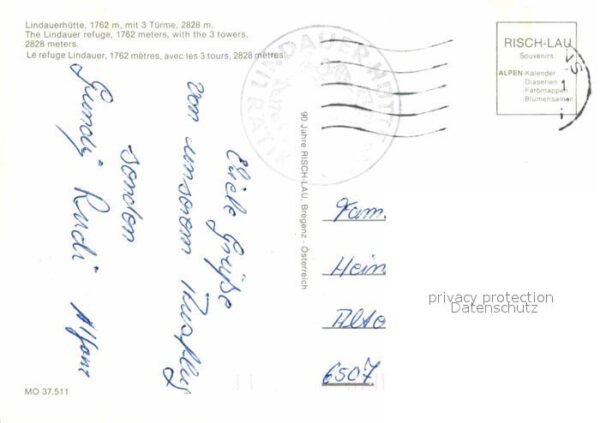 Lindauerhütte, 1762 m, mit 3 Türme, 2828 m.
The Lindauer refuge, 1762 meters, with the 3 towers,
2828 meters.
Le refuge Lindauer, 1762 mètres, avec les 3 tours, 2828 mètres.
LINDAUER HÜTTE
RÄTIK
RISCH-LAU
Souvenirs
ALPEN-Kalender
Diaserien
Farbmappen
Blumensamen
Viele Grüße
von unserem Ausflug
senden
Rudi Alfons
90 Jahre RISCH-LAU, Bregenz - Österreich
Fam.
Hein
6507
privacy protection
Datenschutz
MO 37.511